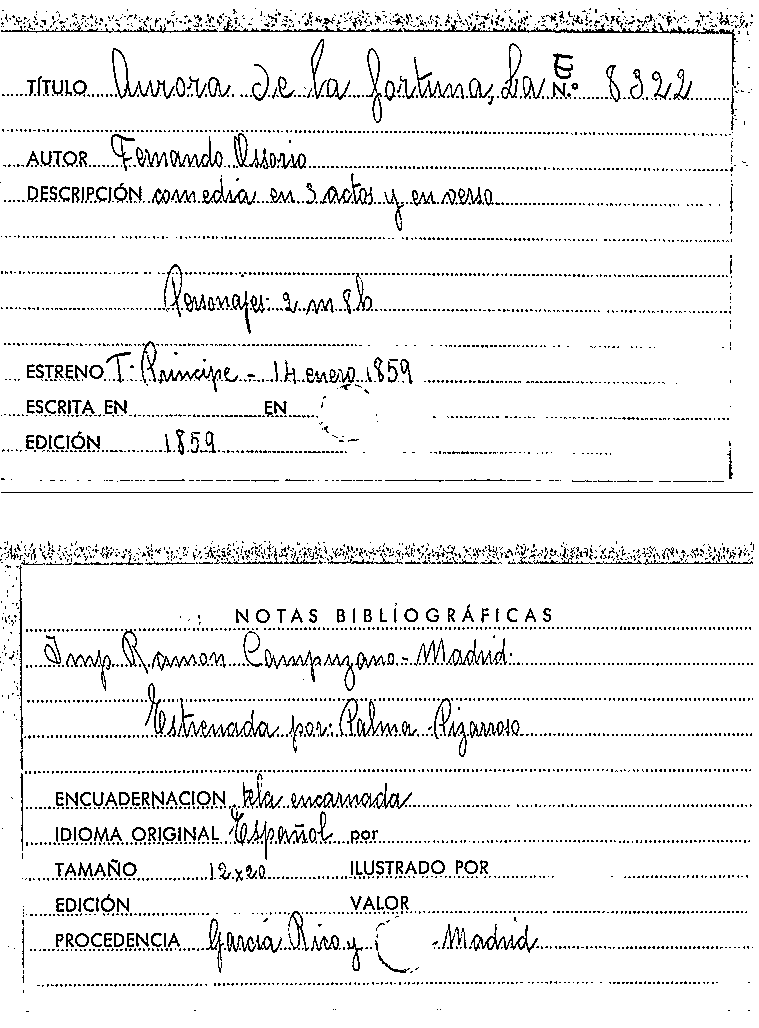 TÍTULO Aurora de la fortuna, La E N.º 8322
AUTOR Fernando Ossorio
DESCRIPCIÓN comedia en 3 actos y en verso
Personajes: 2 m 8 h
ESTRENO T. Principe - 14 enero 1859
ESCRITA EN EN
EDICIÓN 1859
NOTAS BIBLIOGRÁFICAS
Imp Ramon Campuzano - Madrid.
Estrenada por: Palma - Pizarroso
ENCUADERNACION tela encarnada
IDIOMA ORIGINAL Español por
TAMAÑO 12x20 ILUSTRADO POR
EDICIÓN VALOR
PROCEDENCIA García Rico y C - Madrid